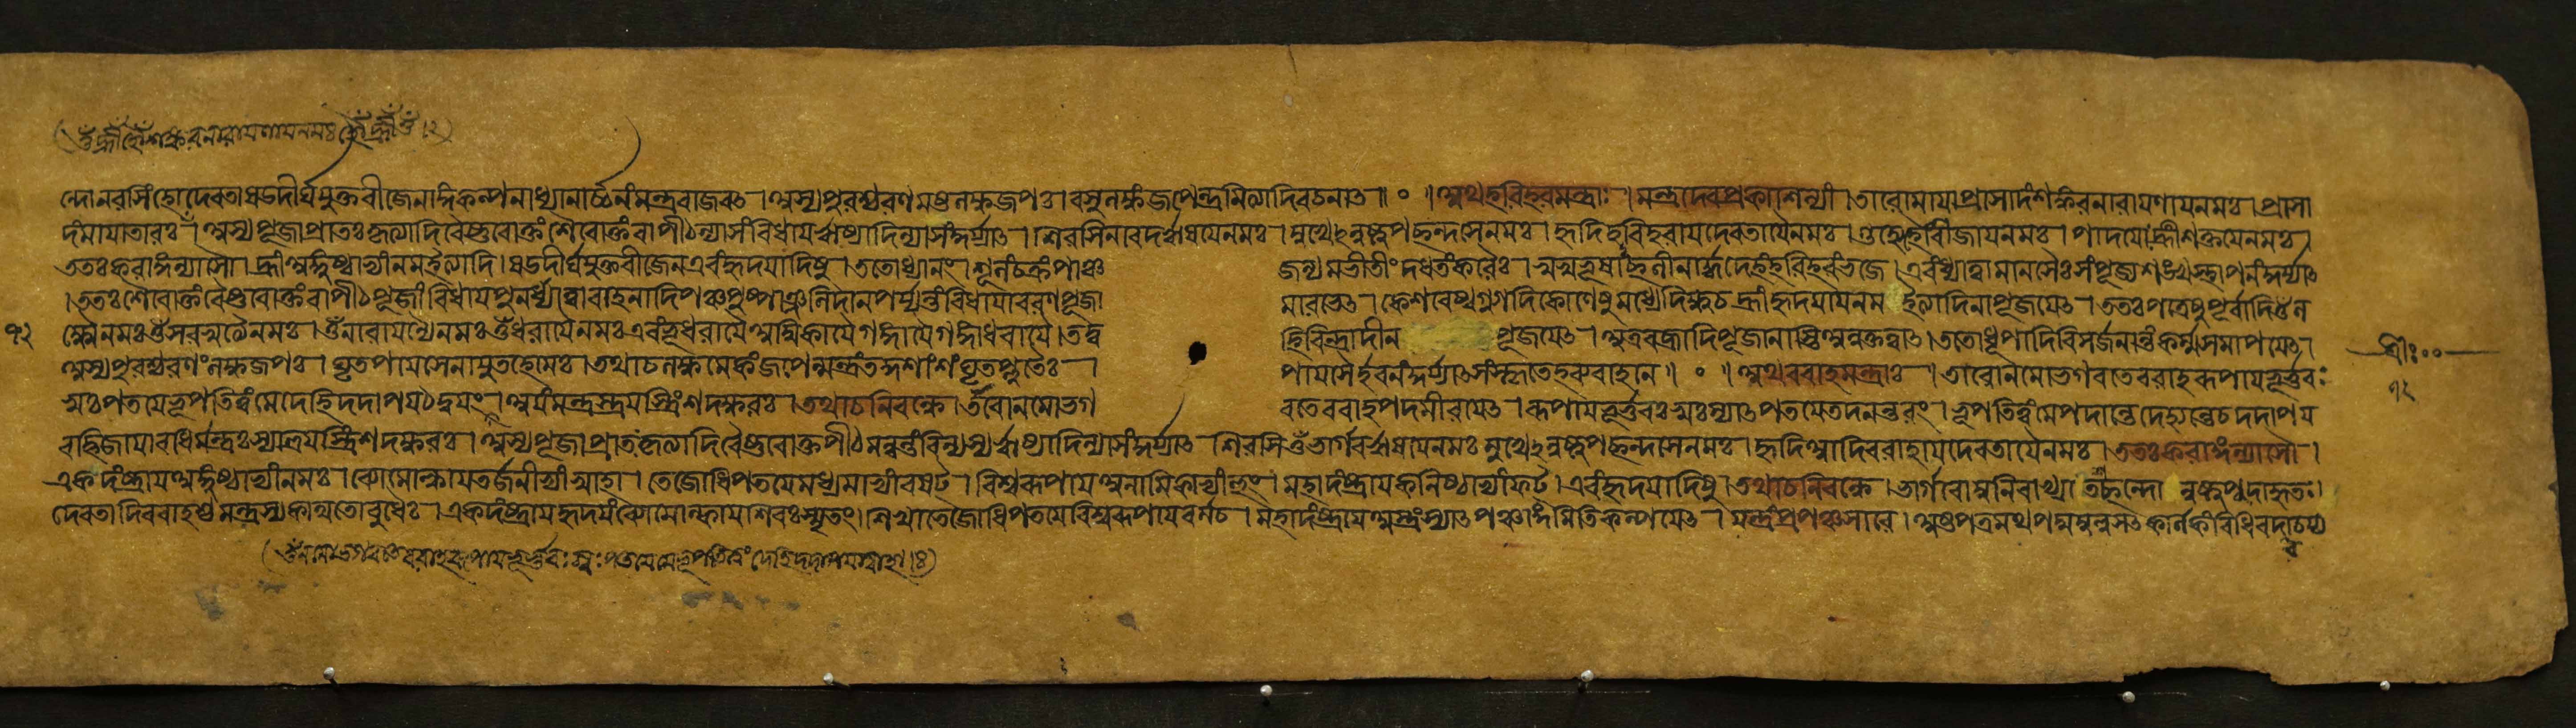 (ওঁ হ্রীঁ হৌঁ শঙ্করনারায়ণায় নমঃ হৌঁ হ্রীঁ ওঁ ।২)
ন্দো নরসিংহো দেবতা ষড়দীর্ঘযুক্তবীজেনাঙ্গকল্পনা ধ্যানার্চ্চনং মন্ত্ররাজবৎ । অস্য পুরশ্চরণমষ্টলক্ষজপঃ । বসুলক্ষং জপেন্মন্ত্রমিত্যাদিবচনাৎ ॥ ॰ । অথ হরিহরমন্ত্রাঃ । মন্ত্রদেবপ্রকাশিন্যাং । তারো মায়া প্রাসাদং শঙ্করনারায়ণায় নমঃ । প্রাসা
দং মায়া তারঃ । অস্য পূজা প্রাতঃকৃত্যাদি বৈষ্ণবোক্তং শৈবোক্তং বা পীঠন্যাসং বিধায় ঋষ্যাদিন্যাসং কুর্য্যাৎ । শিরসি নারদঋষয়ে নমঃ । মুখেঽনুষ্টুপ্ছন্দসে নমঃ । হৃদি হরিহরায় দেবতায়ৈ নমঃ । গুহ্যে হৌঁ বীজায় নমঃ । পাদয়োঃ হ্রীঁ শক্তয়ে নমঃ ।
ততঃ করাঙ্গন্যাসৌ । হ্রাঁ অঙ্গুষ্ঠাভ্যাং নম ইত্যাদি । ষড়দীর্ঘযুক্তবীজেন এবং হৃদয়াদিষু । ততো ধ্যানং । শূলং চক্রং পাঞ্চ জন্যমভীতিং দধতং করৈঃ । স্বস্বভূষার্দ্ধনীলার্দ্ধদেহং হরিহরং ভজে । এবং ধ্যাত্বা মানসৈঃ সংপূজ্য শঙ্খস্থাপনং কুর্য্যাৎ
। ততঃ শৈবোক্তং বৈষ্ণবোক্তং বা পীঠপূজাং বিধায় পুনর্ধ্যাত্বাবাহনাদি পঞ্চপুষ্পাঞ্জলিদানপর্য্যন্তং বিধায়াবরণপূজা মারভেৎ । কেশরেষ্বগ্ন্যাদিকোণেষু মধ্যে দিক্ষু চ হ্রাঁ হৃদয়ায় নম ইত্যাদিনা পূজয়েৎ । ততঃ পত্রেষু পূর্বাদি ওঁ ল
১২
ক্ষ্ম্যৈ নমঃ ওঁ সরস্বত্যৈ নমঃ । ওঁ নারায়ণ্যৈ নমঃ ওঁ ধরায়ৈ নমঃ এবং ভূধরায়ৈ অম্বিকায়ৈ গঙ্গায়ৈ গঙ্গাধরায়ৈ । তদ্ব হিরিন্দ্রাদীন পূজয়েৎ । অত্র বজ্রাদিপূজা নাস্তি অনুক্তত্বাৎ । ততো ধূপাদিবিসর্জনান্তং কর্ম্ম সমাপয়েৎ ।
শ্রীঃ॰॰
অস্য পুরশ্চরণং লক্ষজপঃ । ঘৃতপায়সেনাযুতহোমঃ । তথা চ লক্ষমেকং জপেন্মন্ত্রং তদ্দশাংশং ঘৃতপ্লুতৈঃ । পায়সৈর্হবনং কুর্য্যাৎ সংস্কৃতে হব্যবাহনে ॥ ॰ । অথ বরাহমন্ত্রাঃ । তারো নমো ভগবতে বরাহরূপায় ভূর্ভুবঃ
১২
স্বঃপতয়ে ভূপতিত্বং মে দেহি দদাপয় ঠদ্বয়ং । অয়ং মন্ত্রস্ত্রয়স্ত্রিংশদক্ষরঃ । তথা চ নিবন্ধে । তারো নমো ভগ বতে বরাহপদমীরয়েৎ । রূপায় ভূর্ভুবঃ স্বঃ স্যাৎ পতয়ে তদনন্তরং । ভূপতিত্বং মে পদান্তে দেহ্যন্তে চ দদাপয়
বহ্নিজায়াবধির্মন্ত্রঃ স্যাত্ত্রয়স্ত্রিংশদক্ষরঃ । অস্য পূজা প্রাতঃকৃত্যাদি বৈষ্ণবোক্তপীঠমন্বন্তং বিন্যস্য ঋষ্যাদিন্যাসং কুর্য্যাৎ শিরসি ওঁ ভার্গবঋষয়ে নমঃ মুখেঽনুষ্টুপ্ছন্দসে নমঃ । হৃদি আদিবরাহায় দেবতায়ৈ নমঃ । ততঃ করাঙ্গন্যাসৌ ।
একদংষ্ট্রায় অঙ্গুষ্ঠাভ্যাং নমঃ । ব্যোমোল্কায় তর্জনীভ্যাং স্বাহা । তেজোধিপতয়ে মধ্যমাভ্যাং বষট্ । বিশ্বরূপায় অনামিকাভ্যাং হুং । মহাদংষ্ট্রায় কনিষ্ঠাভ্যাং ফট্ । এবং হৃদয়াদিষু । তথা চ নিবন্ধে । ভার্গবো মুনিরাখ্যাতশ্ছন্দোঽনুষ্টুপুদাহৃতং ।
দেবতাদিবরাহশ্চ মন্ত্রস্য কথিতো বুধৈঃ । একদংষ্ট্রায় হৃদয়ং ব্যোমোল্কায় শিরঃ স্মৃতং । শিখা তেজোধিপতয়ে বিশ্বরূপায় বর্ম চ । মহাদংষ্ট্রায় অস্ত্রং স্যাৎ পঞ্চাঙ্গমিতি কল্পয়েৎ । মন্ত্রং প্রপঞ্চসারে । অষ্টপত্রমথ পদ্মমুল্লসৎ কর্ণিকং বিধিবদারচয্য
(ওঁ নমো ভগবতে বরাহরূপায় ভূর্ভুবঃ স্বঃপতয়ে মে ভূপতিত্বং দেহি দদাপয় স্বাহা ।৪)